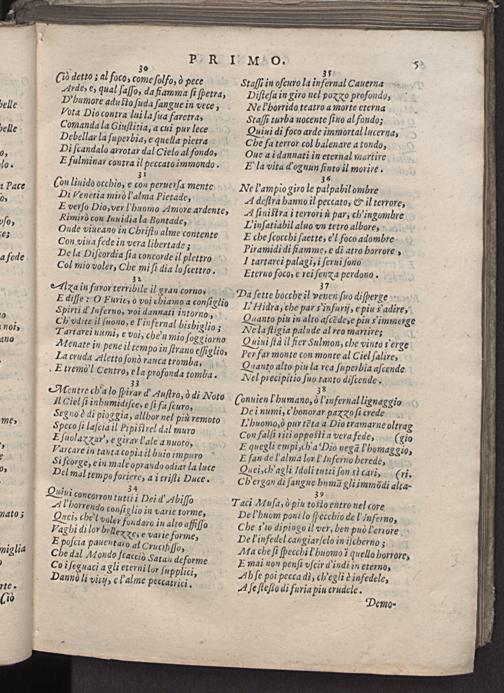 PRIMO. 5
30
Ciò detto; al foco, come solfo, ò pece
Arde, e, qual sasso, da fiamma si spetra,
D'humore adusto suda sangue in vece,
Vota Dio contra lui la sua faretra,
Comanda la Giustitia, a cui pur lece
Debellar la superbia, e quella pietra
Di scandalo arrotar dal Cielo al fondo,
E fulminar contra il peccato immondo.
31
Con liuido occhio, e con peruersa mente
Di Venetia mirò l'alma Pietade,
E verso Dio, ver l'huomo Amore ardente,
Rimirò con Inuidia la Bontade,
Onde viueano in Christo alme contente
Con viua fede in vera libertade;
De la Discordia sia concorde il plettro
Col mio voler, Che mi siè dia lo scettro.
32
Alza in furor terribile il gran corno,
E disse: O Furie, o voi chiamo a consiglio
Spirti d'Inferno, voi dannati intorno,
Ch'vdite il suono, e l'infernal bisbiglio;
Tartarei numi, e voi, che'n mio soggiorno
Menate in pene il tempo in strano essiglio,
La cruda Aletto sonò rauca tromba,
E tremò'l Centro, e la profonda tomba.
33
Mentre ch'a lo spirar d'Austro, ò di Noto
Il Ciel si inhumidisce, e si fa scuro,
Segno è di pioggia, allhor nel più remoto
Speco si lascia il Pipistrel dal muro
E suolazzar', e girar l'ale a nuoto,
Varcare in tanta copia il buio impuro
Si scorge, e in male oprando odiar la luce
Del mal tempo foriere, a i tristi Duce.
34
Quiui concorron tutti i Dei d'Abisso
A l'horrendo consiglio in varie torme,
Quei, che'l voler fondaro in alto affisso
Vaghi di lor bellezze, e varie forme,
E poscia pauentaro al Crucifisso,
Che dal Mondo scacciò Satan deforme
Co i seguaci a gli eterni lor supplici,
Dannò li vitij, e l'alme peccatrici.
35
Stassi in oscuro la infernal Cauerna
Distesa in giro nel pozzo profondo,
Ne l'horrido teatro a morte eterna
Stassi turba nocente sino al fondo;
Quiui di foco arde immortal lucerna,
Che fa terror col balenare a tondo,
Oue a i dannati in eternal martire
E' la vita d'ognun finto il morire.
36
Ne l'ampio giro le palpabil ombre
A destra hanno il peccato, & il terrore,
A sinistra i terrori à par, ch'ingombre
L'insatiabil aluo vn tetro albore,
E che scocchi saette, e'l foco adombre
Piramidi di fiamme, e di atro horrore,
I tartarei palagi, i seni sono
Eterno foco, e rei senza perdono.
37
Da sette bocche il venen suo disperge
L'Hidra, che par s'infurij, e piu s'adire,
Quanto piu in alto ascède, e piu s'immerge
Ne la stigia palude al reo martire;
Quiui stà il fier Sulmon, che vinto s'erge
Per far monte con monte al Ciel salire,
Quanto alto piu la rea superbia ascende
Nel precipitio suo tanto discende.
38
Conuien l'humano, ò l'infernal lignaggio
De i numi, c'honorar pazzo si crede
L'huomo, ò pur tēta a Dio tramarne oltrag
Con falsi riti oppositi a vera fede, (gio
E quegli empi, ch'a Dio negā l'homaggio,
E fan de l'alma lor l'Inferno herede,
Quei, ch'a gli Idoli tutti son sì cari, (ri.
Ch'ergon di sangue humā gli immōdi alta-
39
Taci Musa, ò piu tosto entro nel core
De l'huom poni lo specchio de l'Inferno,
Che s'io dipingo il ver, ben può l'errore
De l'infedel cangiarselo in ischerno;
Ma che si specchi l'huomo ì quello horrore,
E mai non pensi vscir d'indi in eterno,
Ah se poi pecca dì, ch'egli è infedele,
A se stesso di furia piu crudele.
Demo-